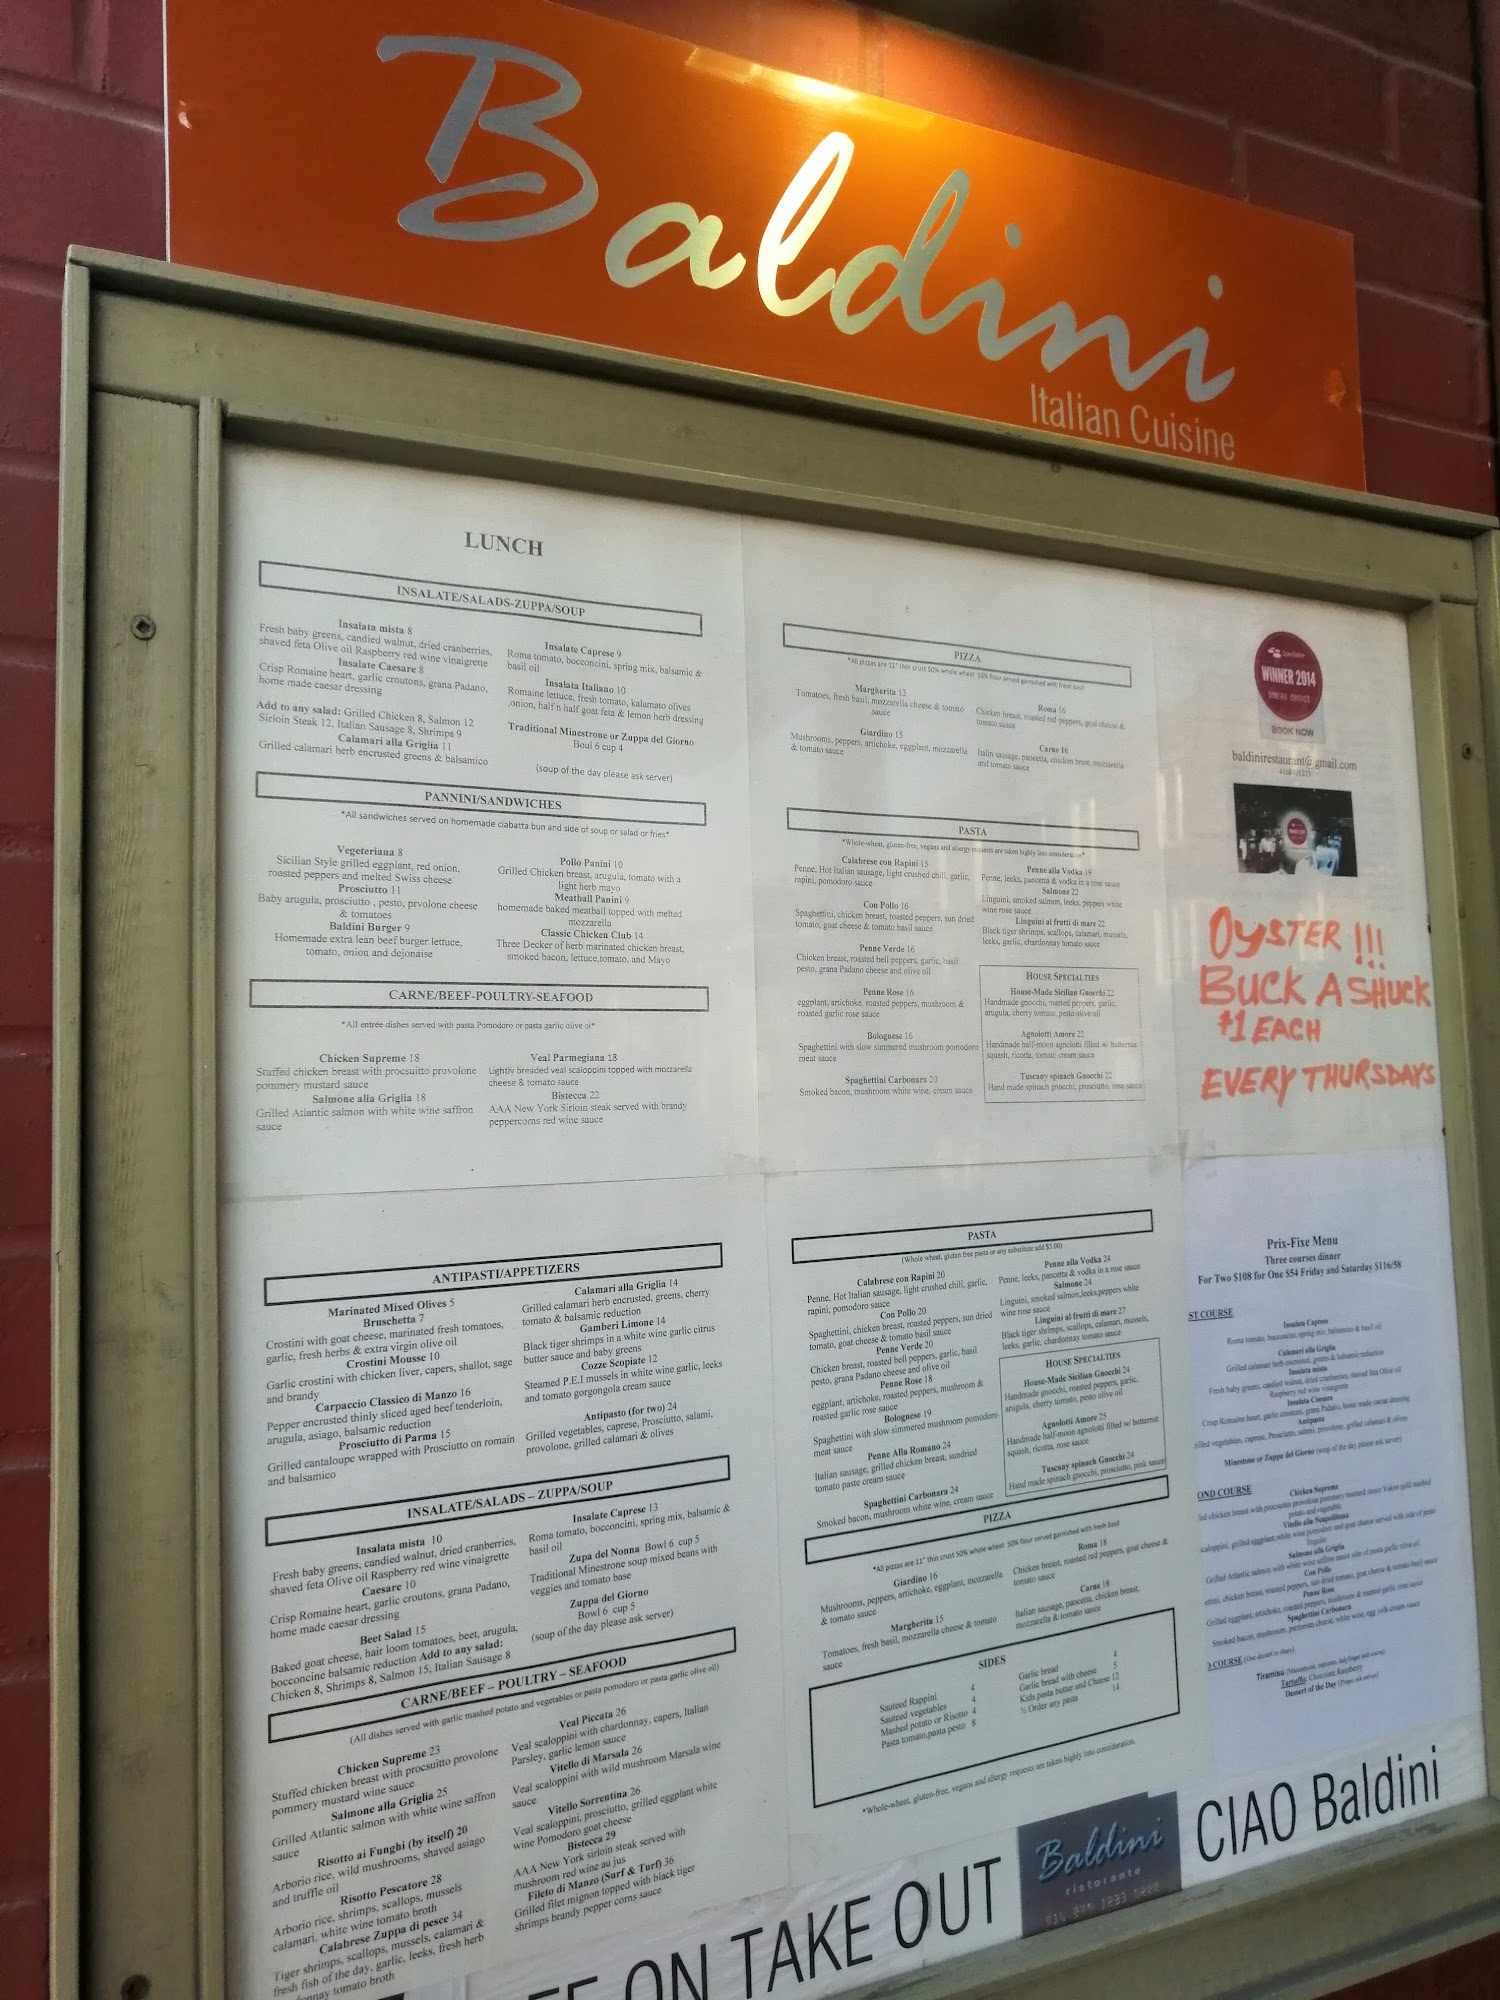 Baldini
Italian Cuisine
LUNCH
INSALATE/SALADS-ZUPPA/SOUP
Insalata mista 8
Fresh baby greens, candied walnut, dried cranberries,
shaved feta Olive oil Raspberry red wine vinaigrette
Insalate Caesare 8
Crisp Romaine heart, garlic croutons, grana Padano,
home made caesar dressing
Add to any salad: Grilled Chicken 8, Salmon 12
Sirloin Steak 12, Italian Sausage 8, Shrimps 9
Calamari alla Griglia 11
Grilled calamari herb encrusted greens & balsamico
Insalate Caprese 9
Roma tomato, bocconcini, spring mix, balsamic &
basil oil
Insalata Italiano 10
Romaine lettuce, fresh tomato, kalamato olives
,onion, half n half goat feta & lemon herb dressing
Traditional Minestrone or Zuppa del Giorno
Boul 6 cup 4
(soup of the day please ask server)
PANNINI/SANDWICHES
*All sandwiches served on homemade ciabatta bun and side of soup or salad or fries*
Vegeteriana 8
Sicilian Style grilled eggplant, red onion,
roasted peppers and melted Swiss cheese
Prosciutto 11
Baby arugula, prosciutto , pesto, prvolone cheese
& tomatoes
Baldini Burger 9
Homemade extra lean beef burger lettuce,
tomato, onion and dejonaise
Pollo Panini 10
Grilled Chicken breast, arugula, tomato with a
light herb mayo
Meatball Panini 9
homemade baked meatball topped with melted
mozzarella
Classic Chicken Club 14
Three Decker of herb marinated chicken breast,
smoked bacon, lettuce,tomato, and Mayo
CARNE/BEEF-POULTRY-SEAFOOD
*All entrée dishes served with pasta Pomodoro or pasta garlic olive oi*
Chicken Supreme 18
Stuffed chicken breast with procsuitto provolone
pommery mustard sauce
Salmone alla Griglia 18
Grilled Atlantic salmon with white wine saffron
sauce
Veal Parmegiana 18
Lightly breaded veal scaloppini topped with mozzarella
cheese & tomato sauce
Bistecca 22
AAA New York Sirloin steak served with brandy
peppercorns red wine sauce
PIZZA
*All pizzas are 11" thin crust 50% whole wheat 50% flour served garnished with fresh basil
Margherita 13
Tomatoes, fresh basil, mozzarella cheese & tomato
sauce
Giardino 15
Mushrooms, peppers, artichoke, eggplant, mozzarella
& tomato sauce
Roma 16
Chicken breast, roasted red peppers, goat cheese &
tomato sauce
Carne 16
Italin sausage, pancetta, chicken breast, mozzarella
and tomato sauce
PASTA
*Whole-wheat, gluten-free, vegans and allergy requests are taken highly into consideration*
Calabrese con Rapini 15
Penne, Hot Italian sausage, light crushed chili, garlic,
rapini, pomodoro sauce
Con Pollo 16
Spaghettini, chicken breast, roasted peppers, sun dried
tomato, goat cheese & tomato basil sauce
Penne Verde 16
Chicken breast, roasted bell peppers, garlic, basil
pesto, grana Padano cheese and olive oil
Penne Rose 16
eggplant, artichoke, roasted peppers, mushroom &
roasted garlic rose sauce
Bolognese 16
Spaghettini with slow simmered mushroom pomodoro
meat sauce
Spaghettini Carbonara 20
Smoked bacon, mushroom white wine, cream sauce
Penne alla Vodka 19
Penne, leeks, pancetta & vodka in a rose sauce
Salmone 22
Linguini, smoked salmon, leeks, peppers white
wine rose sauce
Linguini al frutti di mare 22
Black tiger shrimps, scallops, calamari, mussels,
leeks, garlic, chardonnay tomato sauce
HOUSE SPECIALTIES
House-Made Sicilian Gnocchi 22
Handmade gnocchi, roasted peppers, garlic,
arugula, cherry tomato, pesto olive oil
Agnolotti Amore 22
Handmade half-moon agnolotti filled w/ butternut
squash, ricotta, tomato cream sauce
Tuscany spinach Gnocchi 22
Hand made spinach gnocchi, prosciutto, rose sauce
WINNER 2014
DINERS' CHOICE
BOOK NOW
baldinirestaurant@gmail.com
OYSTER !!!
BUCK A SHUCK
$1 EACH
EVERY THURSDAYS
ANTIPASTI/APPETIZERS
Marinated Mixed Olives 5
Bruschetta 7
Crostini with goat cheese, marinated fresh tomatoes,
garlic, fresh herbs & extra virgin olive oil
Crostini Mousse 10
Garlic crostini with chicken liver, capers, shallot, sage
and brandy
Carpaccio Classico di Manzo 16
Pepper encrusted thinly sliced aged beef tenderloin,
arugula, asiago, balsamic reduction
Prosciutto di Parma 15
Grilled cantaloupe wrapped with Prosciutto on romain
and balsamico
Calamari alla Griglia 14
Grilled calamari herb encrusted, greens, cherry
tomato & balsamic reduction
Gamberi Limone 14
Black tiger shrimps in a white wine garlic citrus
butter sauce and baby greens
Cozze Scopiate 12
Steamed P.E.I mussels in white wine garlic, leeks
and tomato gorgongola cream sauce
Antipasto (for two) 24
Grilled vegetables, caprese, Prosciutto, salami,
provolone, grilled calamari & olives
INSALATE/SALADS – ZUPPA/SOUP
Insalata mista 10
Fresh baby greens, candied walnut, dried cranberries,
shaved feta Olive oil Raspberry red wine vinaigrette
Caesare 10
Crisp Romaine heart, garlic croutons, grana Padano,
home made caesar dressing
Beet Salad 15
Baked goat cheese, hair loom tomatoes, beet, arugula,
bocconcine balsamic reduction Add to any salad:
Chicken 8, Shrimps 8, Salmon 15, Italian Sausage 8
Insalate Caprese 13
Roma tomato, bocconcini, spring mix, balsamic &
basil oil
Zupa del Nonna Bowl 6 cup 5
Traditional Minestrone soup mixed beans with
veggies and tomato base
Zuppa del Giorno
Bowl 6 cup 5
(soup of the day please ask server)
CARNE/BEEF – POULTRY – SEAFOOD
(All dishes served with garlic mashed potato and vegetables or pasta pomodoro or pasta garlic olive oil)
Chicken Supreme 23
Stuffed chicken breast with procsuitto provolone
pommery mustard wine sauce
Salmone alla Griglia 25
Grilled Atlantic salmon with white wine saffron
sauce
Risotto ai Funghi (by itself) 20
Arborio rice, wild mushrooms, shaved asiago
and truffle oil
Risotto Pescatore 28
Arborio rice, shrimps, scallops, mussels
calamari, white wine tomato broth
Calabrese Zuppa di pesce 34
Tiger shrimps, scallops, mussels, calamari &
fresh fish of the day, garlic, leeks, fresh herb
tomato broth
Veal Piccata 26
Veal scaloppini with chardonnay, capers, Italian
Parsley, garlic lemon sauce
Vitello di Marsala 26
Veal scaloppini with wild mushroom Marsala wine
sauce
Vitello Sorrentina 26
Veal scaloppini, prosciutto, grilled eggplant white
wine Pomodoro goat cheese
Bistecca 29
AAA New York sirloin steak served with
mushroom red wine au jus
Fileto di Manzo (Surf & Turf) 36
Grilled filet mignon topped with black tiger
shrimps brandy pepper corns sauce
PASTA
(Whole wheat, gluten free pasta or any substitute add $3.00)
Calabrese con Rapini 20
Penne, Hot Italian sausage, light crushed chili, garlic,
rapini, pomodoro sauce
Con Pollo 20
Spaghettini, chicken breast, roasted peppers, sun dried
tomato, goat cheese & tomato basil sauce
Penne Verde 20
Chicken breast, roasted bell peppers, garlic, basil
pesto, grana Padano cheese and olive oil
Penne Rose 18
eggplant, artichoke, roasted peppers, mushroom &
roasted garlic rose sauce
Bolognese 19
Spaghettini with slow simmered mushroom pomodoro
meat sauce
Penne Alla Romano 24
Italian sausage, grilled chicken breast, sundried
tomato paste cream sauce
Spaghettini Carbonara 24
Smoked bacon, mushroom white wine, cream sauce
Penne alla Vodka 24
Penne, leeks, pancetta & vodka in a rose sauce
Salmone 24
Linguini, smoked salmon,leeks,peppers white
wine rose sauce
Linguini al frutti di mare 27
Black tiger shrimps, scallops, calamari, mussels,
leeks, garlic, chardonnay tomato sauce
HOUSE SPECIALTIES
House-Made Sicilian Gnocchi 24
Handmade gnocchi, roasted peppers, garlic,
arugula, cherry tomato, pesto olive oil
Agnolotti Amore 25
Handmade half-moon agnolotti filled w/ butternut
squash, ricotta, rose sauce
Tuscany spinach Gnocchi 24
Hand made spinach gnocchi, prosciutto, pink sauce
PIZZA
*All pizzas are 11" thin crust 50% whole wheat 50% flour served garnished with fresh basil
Giardino 16
Mushrooms, peppers, artichoke, eggplant, mozzarella
& tomato sauce
Margherita 15
Tomatoes, fresh basil, mozzarella cheese & tomato
sauce
Roma 18
Chicken breast, roasted red peppers, goat cheese &
tomato sauce
Carne 18
Italian sausage, pancetta, chicken breast,
mozzarella & tomato sauce
SIDES
Sauteed Rappini 4
Sauteed vegetables 4
Mashed potato or Risotto 4
Pasta tomato,pasta pesto 8
Garlic bread 4
Garlic bread with cheese 5
Kids pasta butter and Cheese 12
½ Order any pasta 14
*Whole-wheat, gluten-free, vegans and allergy requests are taken highly into consideration
Prix-Fixe Menu
Three courses dinner
For Two $108 for One $54 Friday and Saturday $116/58
ST COURSE
Insalata Caprese
Roma tomato, bocconcini, spring mix, balsamico & basil oil
Calamari alla Griglia
Grilled calamari herb encrusted, greens & balsamic reduction
Insalata mista
Fresh baby greens, candied walnut, dried cranberries, shaved feta Olive oil
Raspberry red wine vinaigrette
Insalata Caesare
Crisp Romaine heart, garlic croutons, grana Padano, home made caesar dressing
Antipasto
rilled vegetables, caprese, Prosciutto, salami, provolone, grilled calamari & olives
Minestone or Zuppa del Giorno (soup of the day please ask server)
OND COURSE
Chicken Supreme
ed chicken breast with procsuitto provolone pommery mustard sauce Yukon gold mashed
potato and vegetable
Vitello alla Neapolitana
caloppini, grilled eggplant,white wine pomodoro and goat cheese served with side of pesto
linguini
Salmone alla Griglia
Grilled Atlantic salmon with white wine saffron sauce side of pasta garlic olive oil
Con Pollo
ettini, chicken breast, roasted peppers, sun dried tomato, goat cheese & tomato basil sauce
Penne Rose
Grilled eggplant, artichoke, roasted peppers, mushroom & roasted garlic rose sauce
Spaghetti Carbonara
Smoked bacon, mushroom, parmesan cheese, white wine, egg yolk cream sauce
COURSE (One dessert to share)
Tiramisu (Mascarpone, espresso, ladyfinger and cocoa)
Tartuffo: Chocolate Raspberry
Dessert of the Day (Please ask server)
ON TAKE OUT
Baldini
ristorante
CIAO Baldini